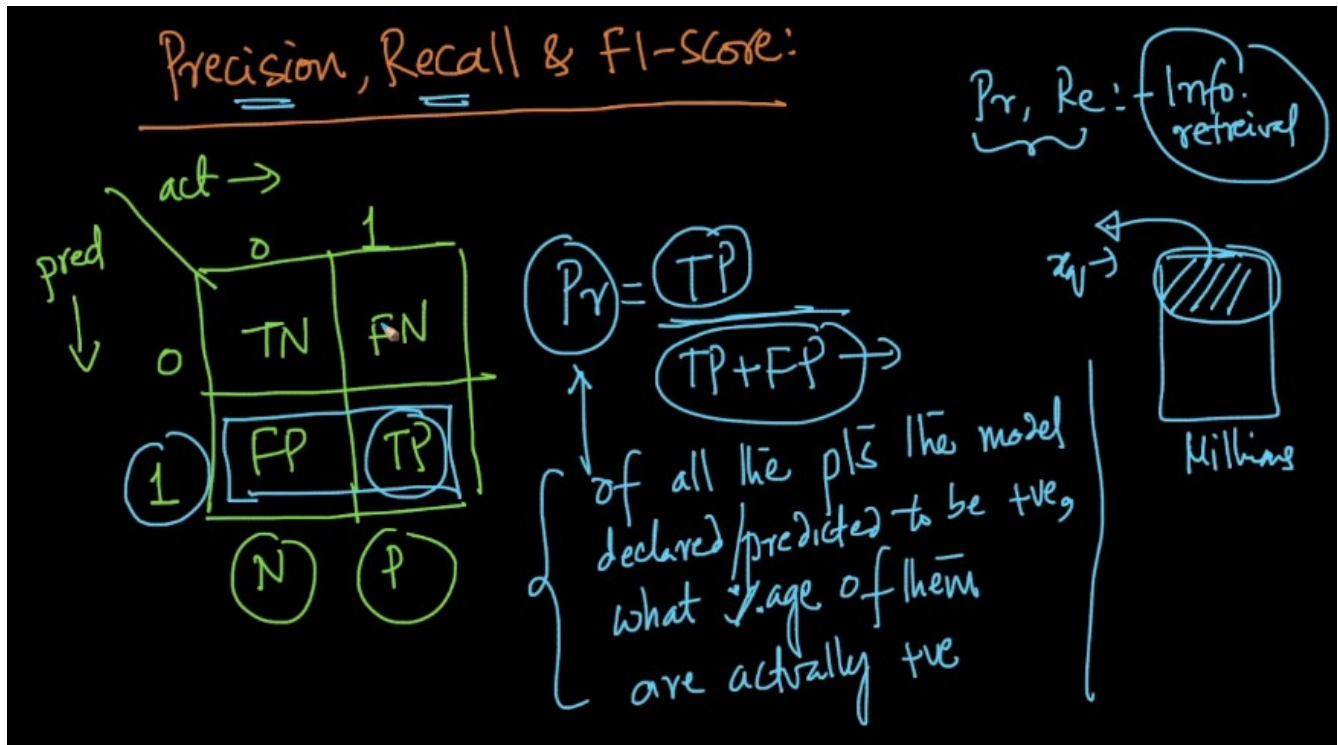 Precision, Recall & F1-Score:
Pr, Re :- Info. retreival
act →
pred ↓
0 1
0 TN FN
1 FP TP
N P
Pr = TP
TP+FP →
of all the pts the model
declared/predicted to be +ve,
what %age of them
are actually +ve
xq →
Millions